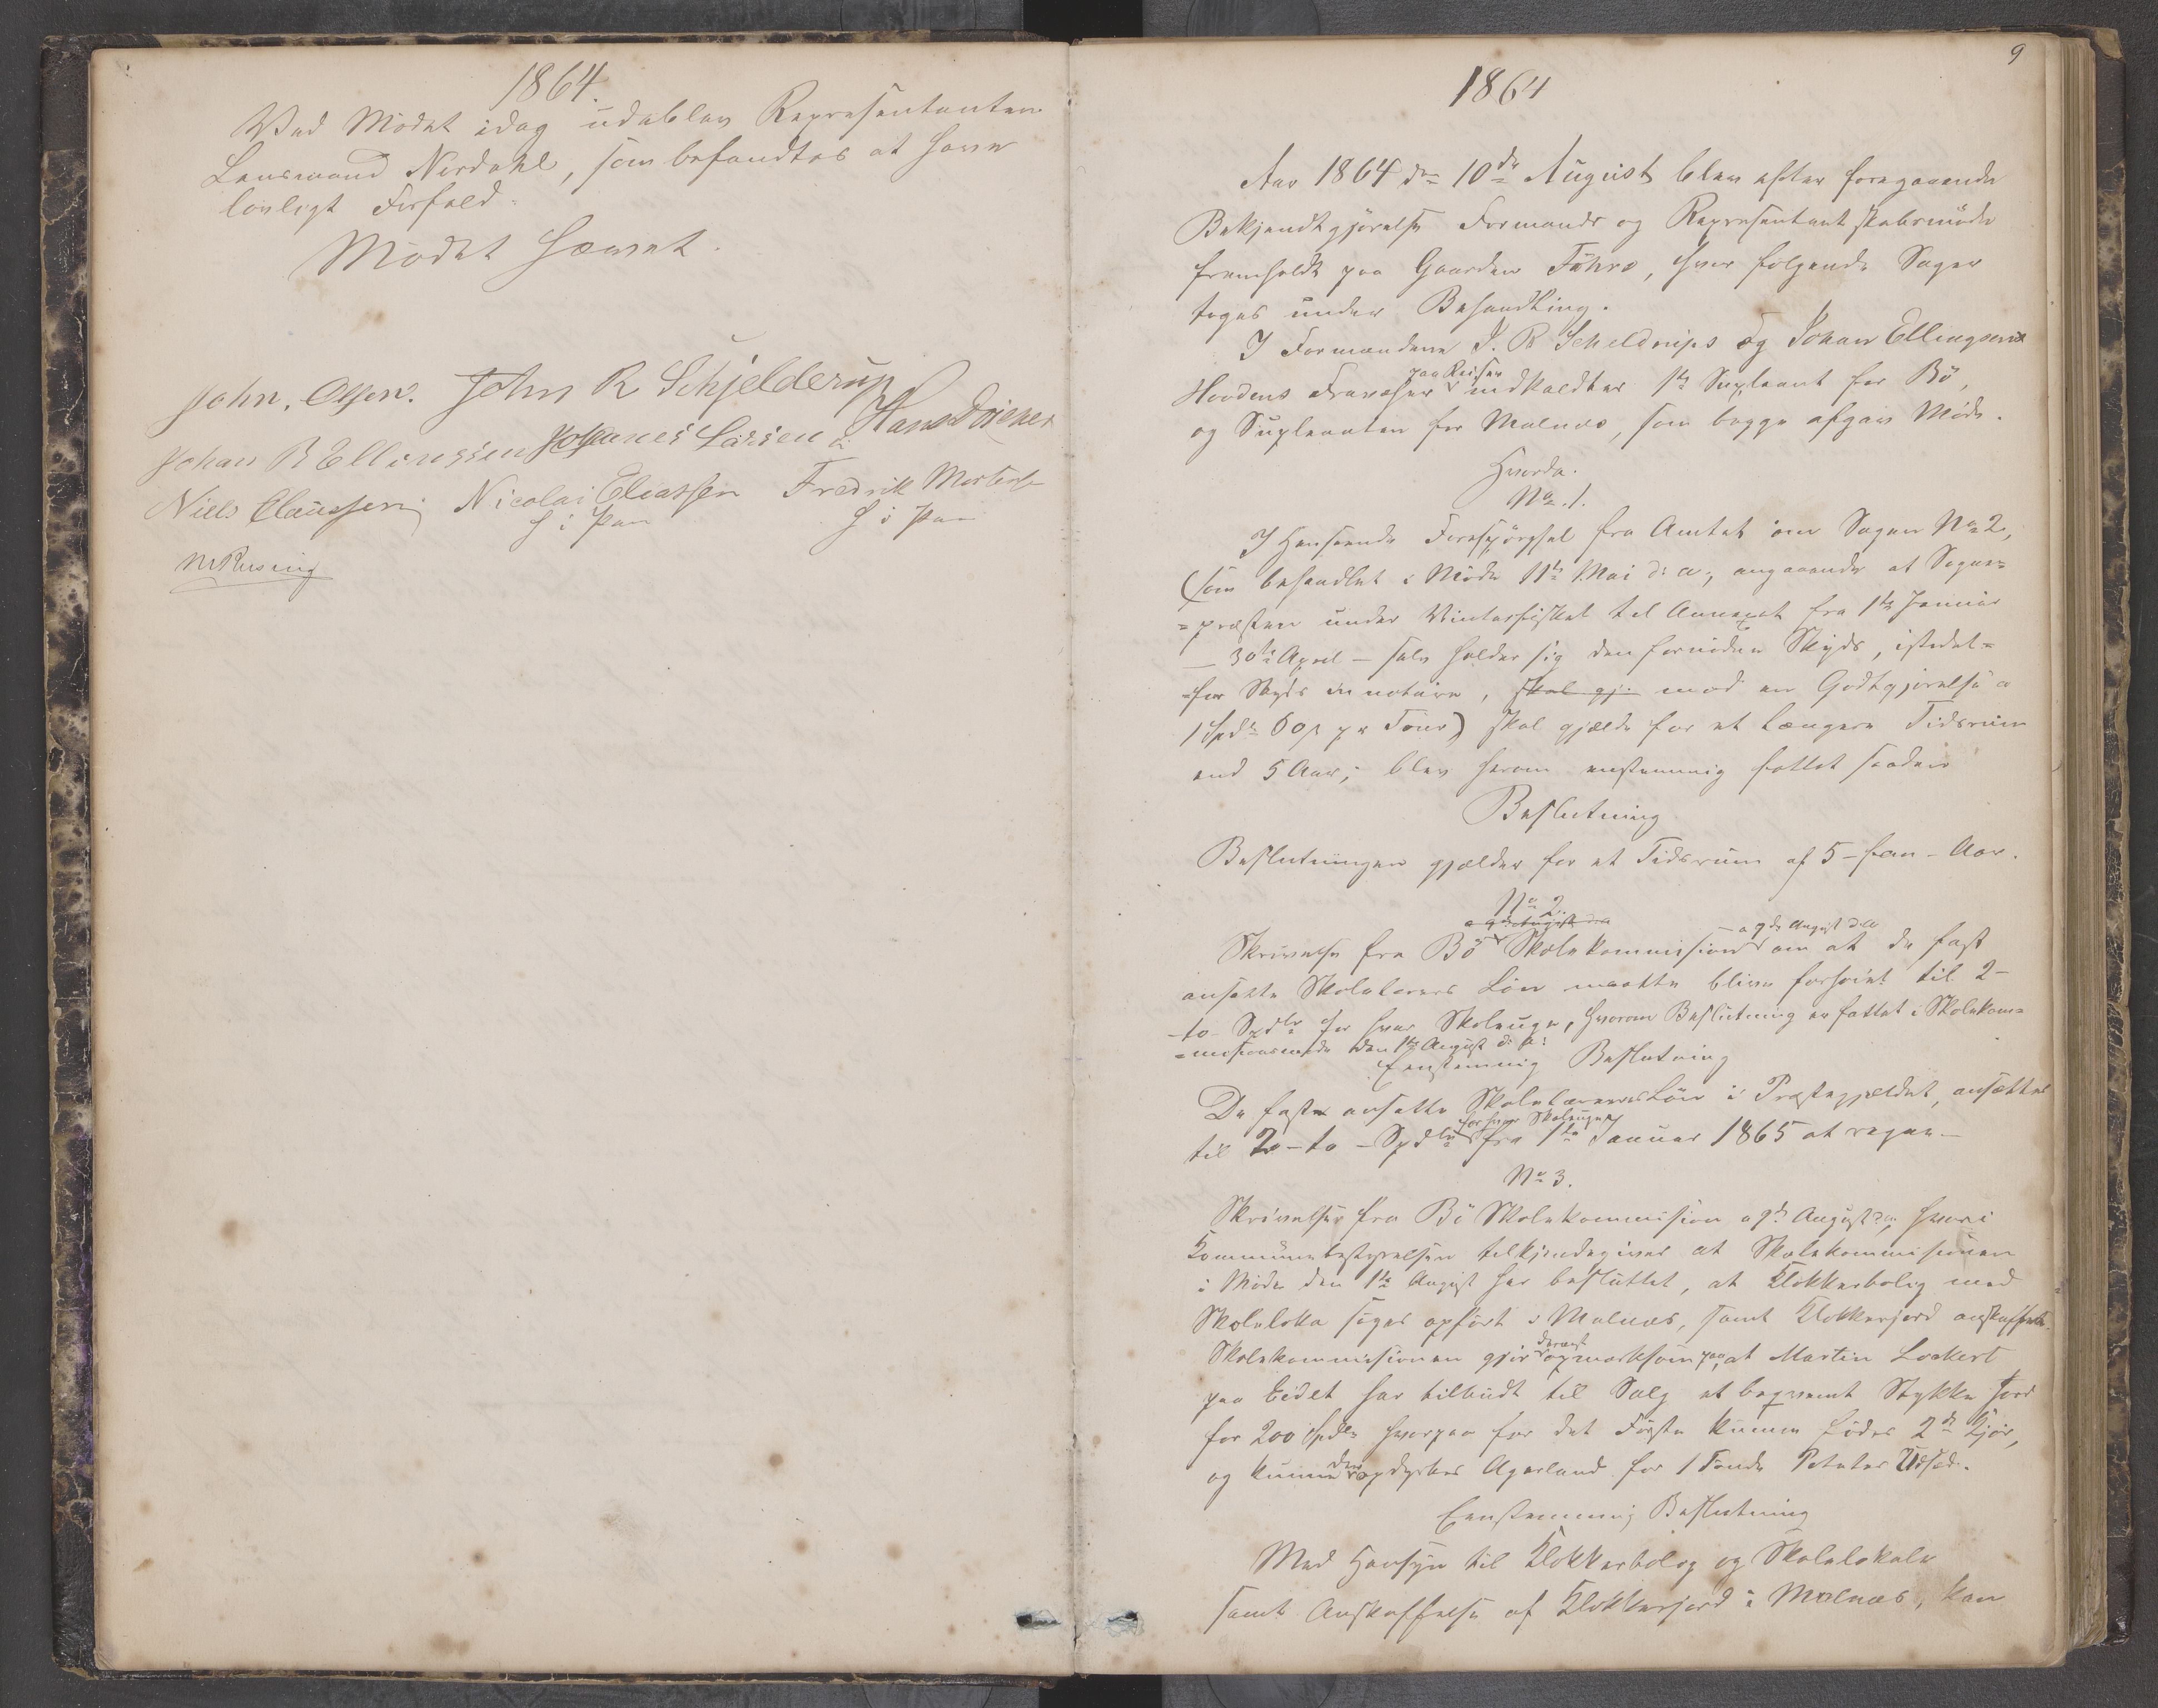 1864.
Ved Mødet idag udeblev Repræsentanten
Lensmand Nordahl, som befandtes at have
lovligt Forfald.
Mødet hævet.
John. Olsen. John R Schjelderup
Johan B Ellingsen Johannes Larsen Hans
Niels Claussen Nicolai Eliassen Fredrik Mortens
h i Pen h i Pen
9
1864
Aar 1864 den 10de August blev efter foregaaende
Bekjendtgjørelse Formands og Repræsentantskabsmøde
fremholdt paa Gaarden Føhre, hvor følgende Sager
toges under Behandling.
I Formændene J. R Schelderups og Johan Ellingsens
paa Reiser
Hovdens Fravær indkaldtes 1te Supleant for Bø,
og Supleanten for Malnæs, som begge afgav Møde.
Hvorda.
No. 1.
I Henseende Forespørgsel fra Amtet om Sagen No 2,
(som behandlet i Møde 11te Mai d: a; angaaende at Sogne=
=præsten under Vinterfisket til Annexet fra 1te Januar
— 30te April — selv holder sig den fornødne Skyds, istedet=
=for Skyds in natura, skal gj: mod en Godtgjørelse a
1 Spdlr 60 s pr Tour) skal gjælde for et længere Tidsrum
end 5 Aar; blev herom enstemmig fattet saadan
Beslutning
Beslutningen gjælder for et Tidsrum af 5 – fem – Aar.
No 2.
— a 9de August d: a
Skrivelse fra Bø Skolekommission om at de fast
ansatte Skolelæreres Løn maatte blive forhøiet til 2-
-to- Spdlr for hver Skoleuge, hvorom Beslutning er fattet i Skolekom=
=missionsmøde den 1te August d: A:
Eenstemmig Beslutning
De faste ansatte Skolelæreres Løn i Præstegjeldet, ansættes
for hver Skoleuge
til 2 – to – Spdlr fra 1te Januar 1865 at regne —
No 3.
Skrivelse fra Bø Skolekommission a 9de August d: a, hvori
Kommunebestyrelsen tilkjendegives at Skolekommissionen
i Møde den 1te August har besluttet, at Klokkerbolig med
Skolelokale søges opført i Malnæs, samt Klokkerjord anskaffet.
Skolekommissionen gjør derhos opmærksom paa, at Martin Lockert
paa Eidet har tilbudt til Salg et beqvemt Stykke Jord
for 200 Spdlr hvorpaa for det Første kunne fødes 2de Kjør,
og kunne der opdyrkes Agerland for 1 Tønde Poteter Udsæd.
Eenstemmig Beslutning
Med Hensyn til Klokkerbolig og Skolelokale
samt Anskaffelse af Klokkerjord i Malnæs, kan